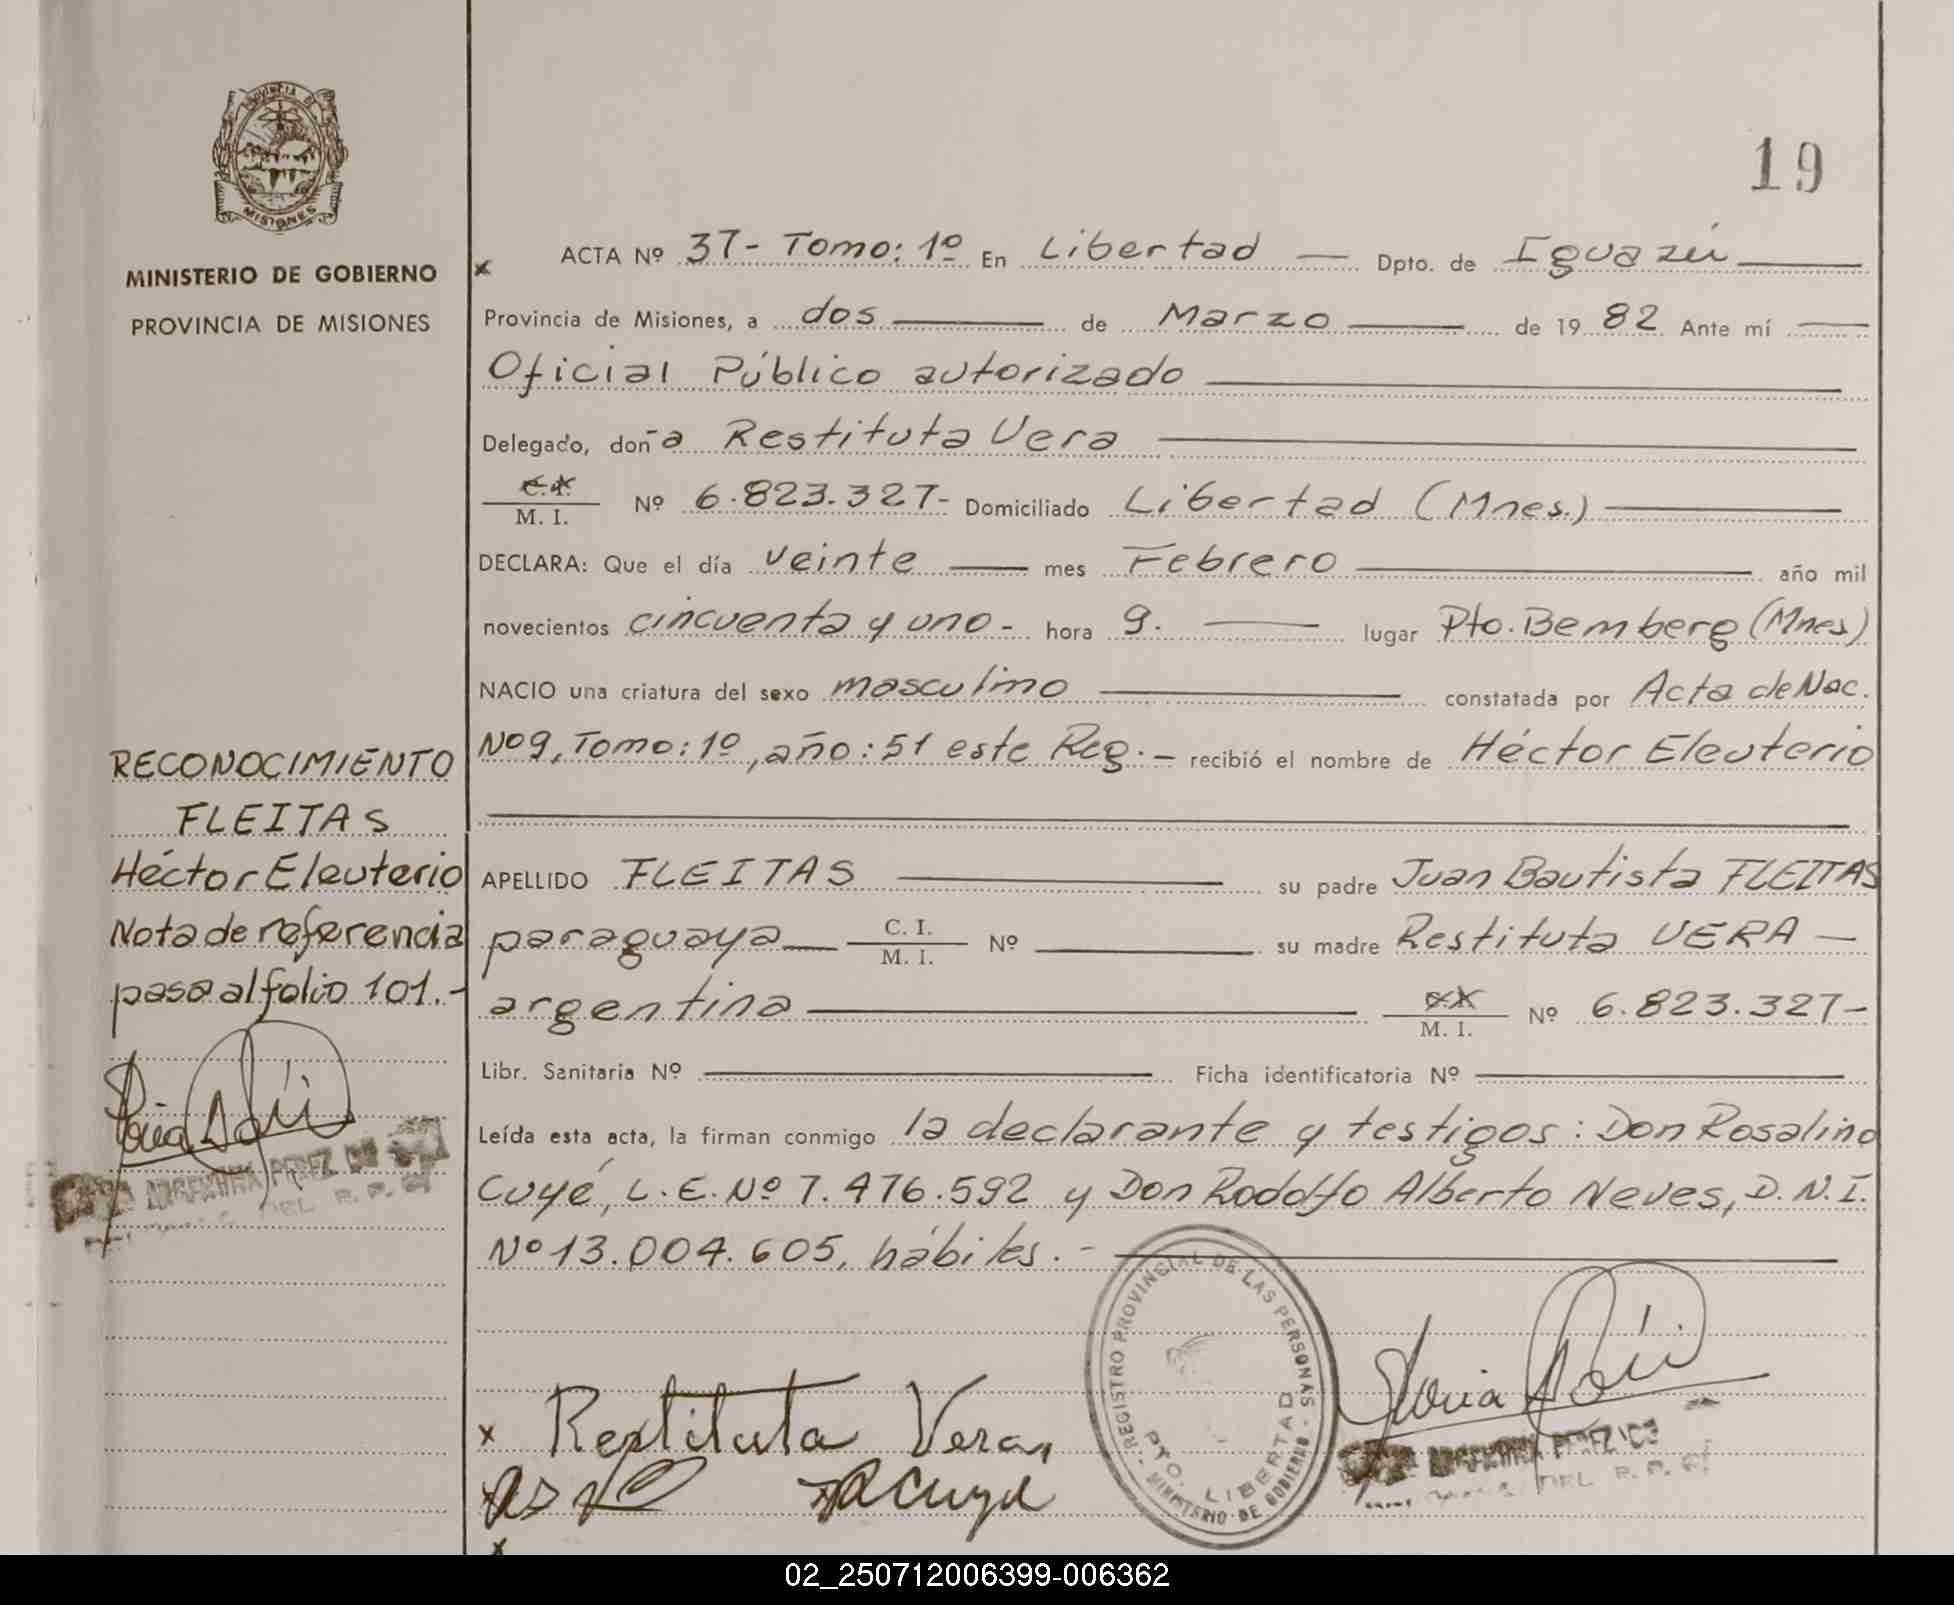 PROVINCIA DE
MISIONES
MINISTERIO DE GOBIERNO
PROVINCIA DE MISIONES
19
x ACTA Nº 37- Tomo: 1º En Libertad — Dpto. de Iguazú —
Provincia de Misiones, a dos — de Marzo — de 19 82 Ante mí —
Oficial Público autorizado —
Delegado, doña Restituta Vera —
C. I.
M. I. Nº 6.823.327- Domiciliado Libertad (Mnes.) —
DECLARA: Que el día veinte — mes Febrero — año mil
novecientos cincuenta y uno - hora 9. — lugar Pto. Bemberg (Mnes)
NACIO una criatura del sexo masculino — constatada por Acta de Nac.
Nº9, Tomo: 1º, año: 51 este Reg. - recibió el nombre de Héctor Eleuterio
APELLIDO FLEITAS — su padre Juan Bautista FLEITAS
paraguaya — C. I.
M. I. Nº — su madre Restituta VERA —
argentina — M. I. Nº 6.823.327-
Libr. Sanitaria Nº — Ficha identificatoria Nº —
Leída esta acta, la firman conmigo la declarante y testigos: Don Rosalino
Cuyé, L.E. Nº 7.476.592 y Don Rodolfo Alberto Neves, D.N.I.
Nº 13.004.605, hábiles. - —
RECONOCIMIENTO
FLEITAS
Héctor Eleuterio
Nota de referencia
pasa al folio 101.-
ARGENTINA PEREZ DE
DEL R. P. P.
x Restituta Vera
x R Cuye
REGISTRO PROVINCIAL DE LAS PERSONAS - MINISTERIO DE GOBIERNO -
PTO. LIBERTAD
ARGENTINA PEREZ DE
DEL R. P. P.
x
02_250712006399-006362